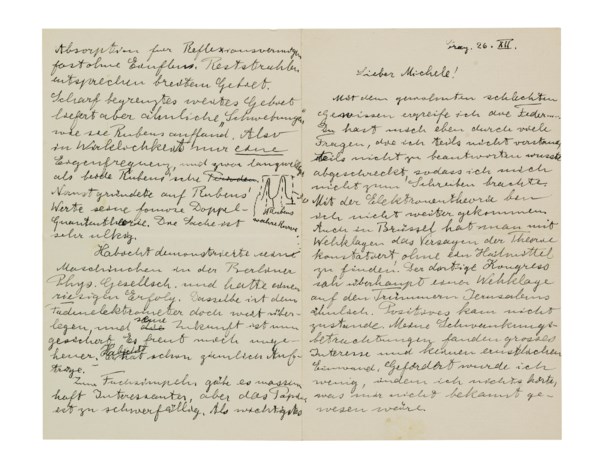 Prag. 26. XII.
Lieber Michele!
Mit dem gewohnten schlechten
Gewissen ergreife ich die Feder.
Du hast mich eben durch viele
Fragen, die ich teils nicht verstand,
teils nicht zu beantworten wusste
abgeschreckt, sodass ich mich
nicht zum Schreiben brachte.
Mit der Elektronentheorie bin
ich nicht weiter gekommen.
Auch in Brüssel hat man mit
Wehklagen das Versagen der Theorie
konstatiert ohne ein Heilmittel
zu finden. Der dortige Kongress
sah überhaupt einer Wehklage
auf den Trümmern Jerusalems
ähnlich. Positives kam nicht
zustande. Meine Schwankungs-
betrachtungen fanden grosses
Interesse und keinen ernstlichen
Einwand. Gefördert wurde ich
wenig, indem ich nichts hörte,
was mir nicht bekannt ge-
wesen wäre.
Absorption für Reflexionsvermögen
fast ohne Einfluss. Reststrahlen
entsprechen breitem Gebiet.
Scharf begrenztes weites Gebiet
liefert aber ähnliche "Schwebungen"
wie sie Rubens auffand. Also
in Wirklichkeit nur eine
Eigenfrequenz, und zwar langwelliger
als beide Rubens'sche
Nernst gründete auf Rubens'
Werte seine famose Doppel-
Quantentheorie. Die Sache ist
sehr ulkig.
Rubens
wahre Kurve
Habicht demonstrierte seine
Maschinchen in der Berliner
Phys. Gesellsch. und hatte einen
riesigen Erfolg. Dasselbe ist dem
Fadenelektrometer doch weit über-
legen, und seine Zukunft ist nun
gesichert. Es freut mich unge-
heuer, Habicht hat schon ziemlich Auf-
träge.
Zum Fachsimpeln gäbe es massen-
haft Interessantes, aber das Papier
ist zu schwerfällig. Als wichtigstes